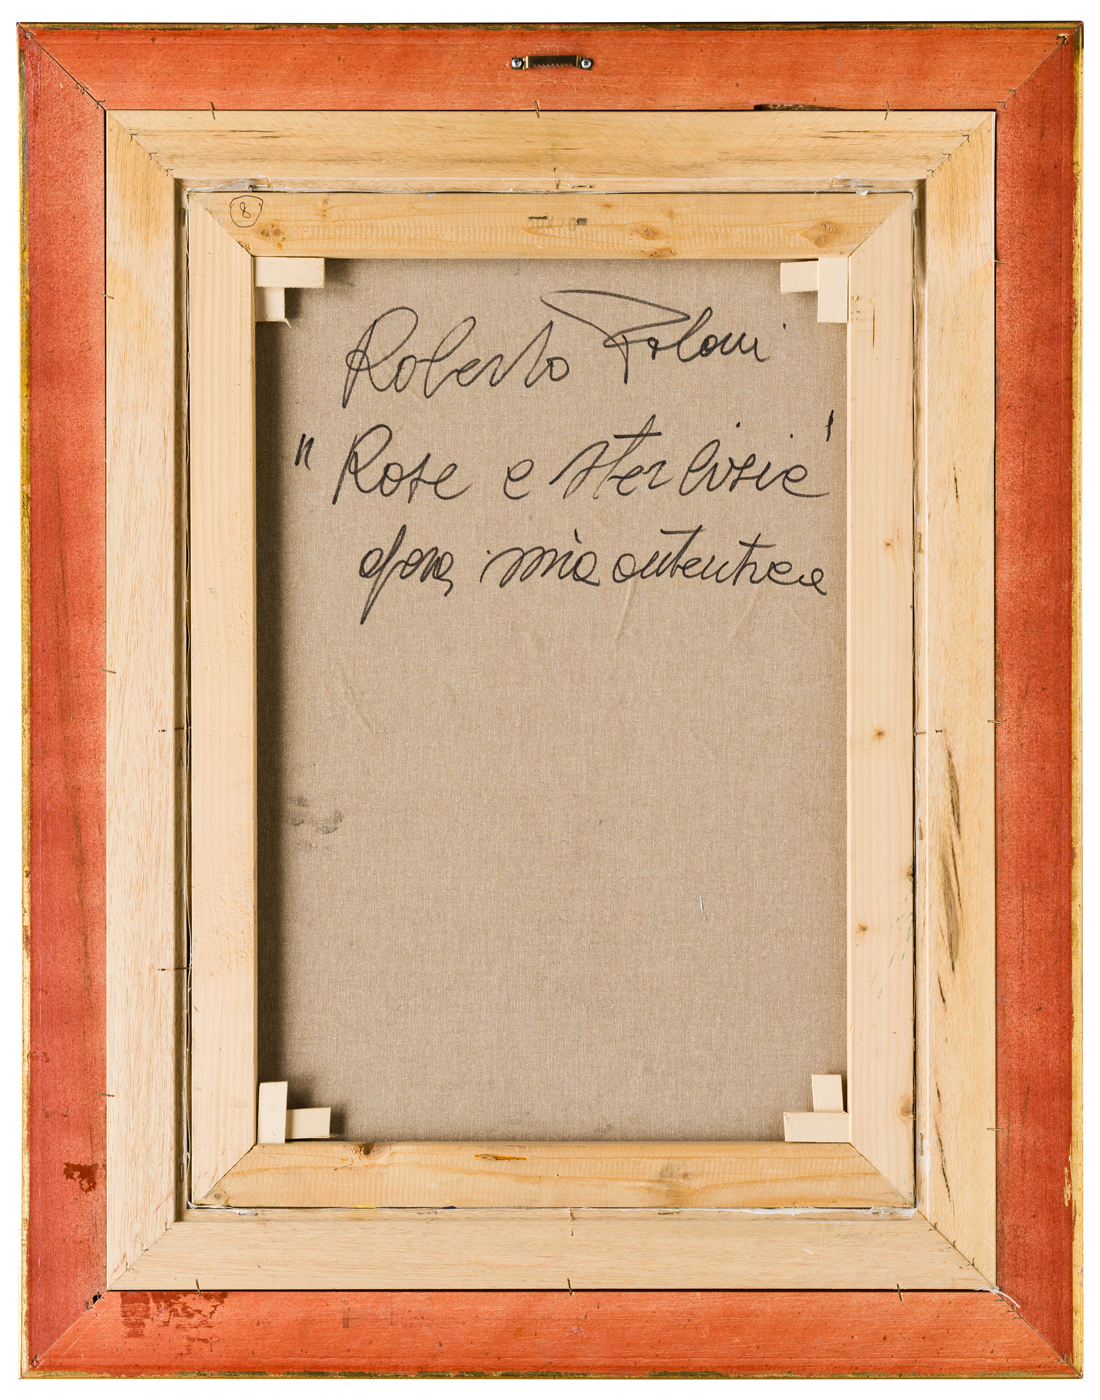 8
Roberto Poloni
"Rose e sterlisie"
opera mia autentica